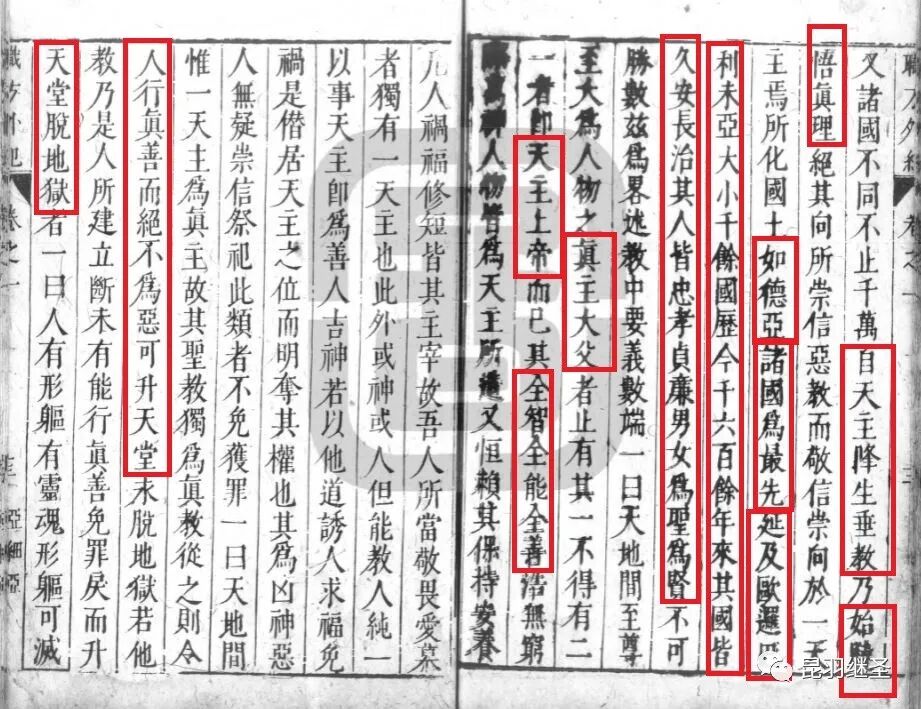 又諸國不同不止千萬自天主降生垂教乃始
悟眞理絕其向所崇信惡教而敬信崇向於一天
主焉所化國土如德亞諸國爲最先延及歐邏巴
利未亞大小千餘國歷今千六百餘年來其國皆
久安長治其人皆忠孝貞廉男女爲聖爲賢不可
勝數茲爲畧述教中要義數端一曰天地間至尊
至大爲人物之眞主大父者止有其一不得有二
一者卽天主上帝而已其全智全能全善浩無窮
萬神人物皆爲天主所造又恒賴其保持安養
凡人禍福修短皆其主宰故吾人所當敬畏愛慕
者獨有一天主也此外或神或人但能教人純一
以事天主卽爲善人吉神若以他道誘人求福免
禍是僭居天主之位而明奪其權也其爲凶神惡
人無疑崇信祭祀此類者不免獲罪一曰天地間
惟一天主爲眞主故其聖教獨爲眞教從之則令
人行眞善而絕不爲惡可升天堂永脫地獄若他
教乃是人所建立斷未有能行眞善免罪戾而升
天堂脫地獄者一曰人有形軀有靈魂形軀可滅
昆羽继圣